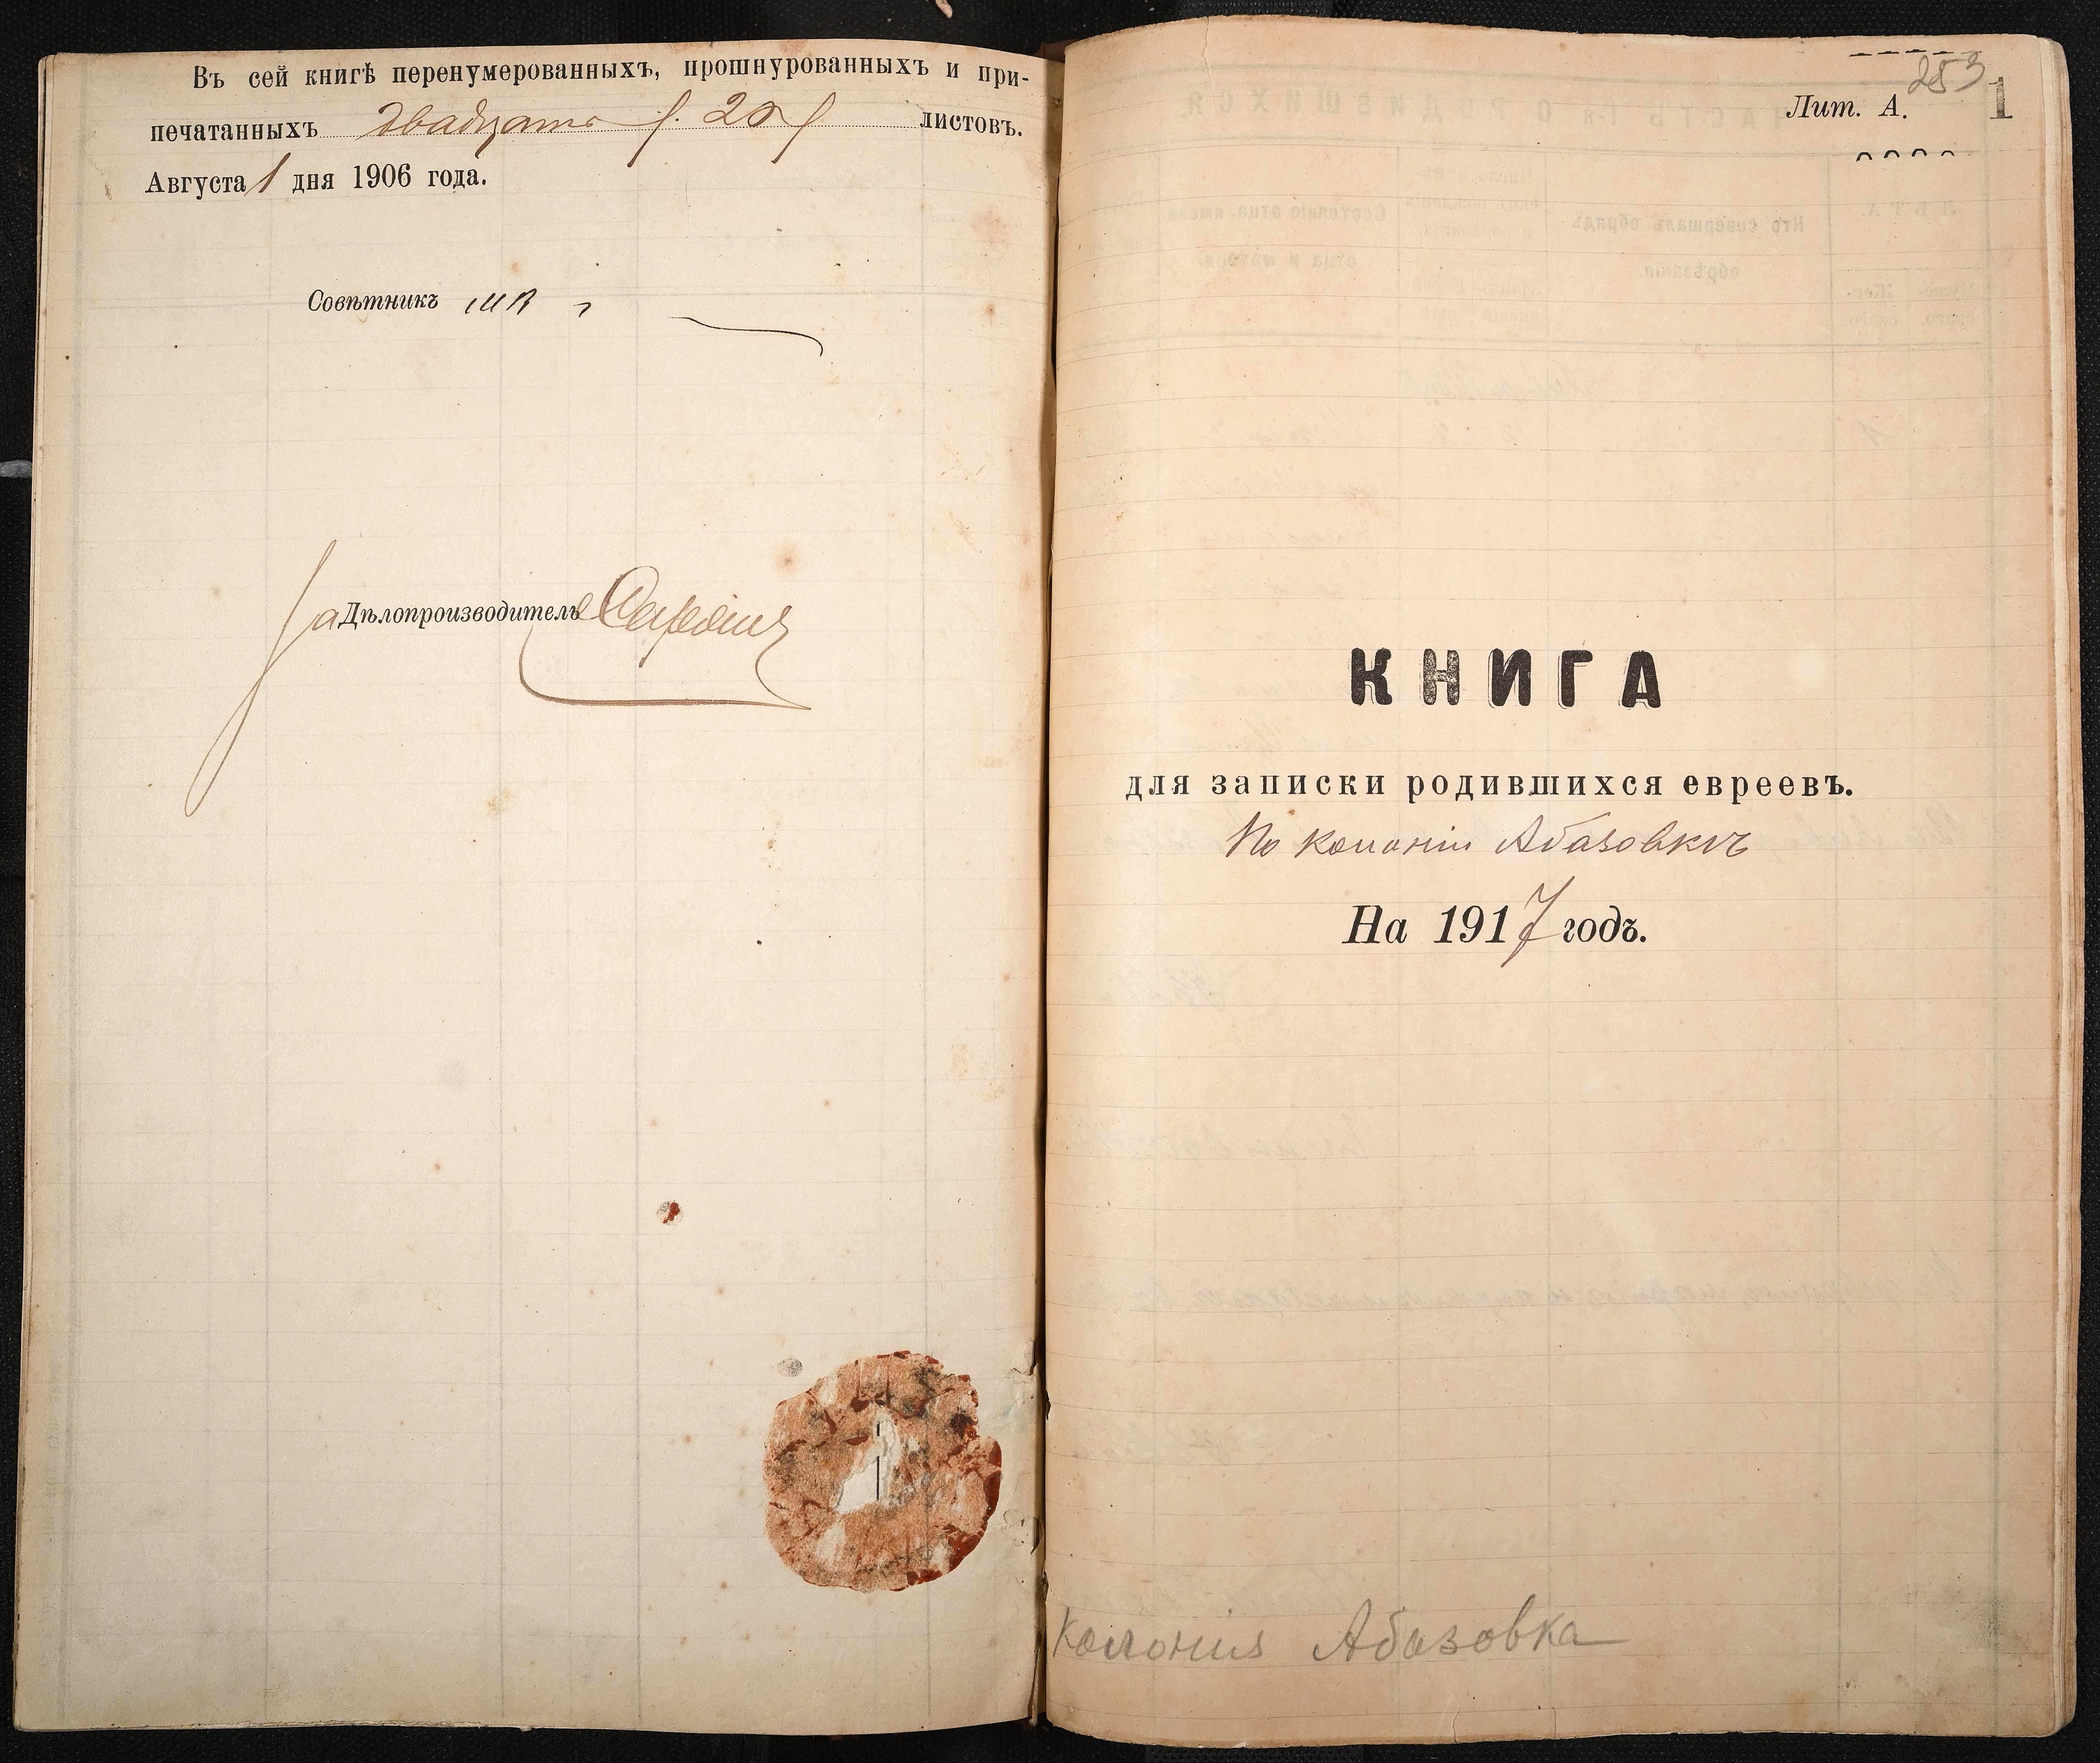 Въ сей книгѣ перенумерованныхъ, прошнурованныхъ и при-
печатанныхъ двадцать (20) листовъ.
Августа 1 дня 1906 года.
Совѣтникъ
за Дѣлопроизводитель
253
Лит. А. 1
КНИГА
для записки родившихся евреевъ.
По колоніи Абазовкѣ
На 1917 годъ.
Колонія Абазовка